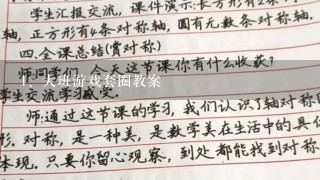 学生汇报交流，课件演示：长方形有2条对
轴，正方形有4条对称轴，圆有无数条对称轴。
四.全课总结(赏对称)
师：同学们，今天这节课你有什么收获？
1、大班游戏套圈教案
学生交流学习
师：通过这节课的学习，我们认识了轴对称图
形.对称，是一种美，是数学美在生活中的具体
体现.只要你留心观察，到处都能找到对称